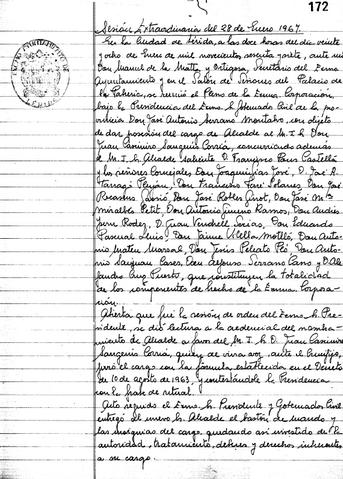 172
Sesión Extraordinaria del 28 de Enero 1967.
En la Ciudad de Lérida, a las doce horas del día veinte
y ocho de Enero de mil novecientos sesenta y siete, ante mi
Don Manuel de la Mata y Ortigosa, Secretario del Excmo
Ayuntamiento y en el Salón de Sesiones del Palacio de
la Pahería, se reunió el Pleno de la Excma. Corporación
bajo la Presidencia del Excmo. Sr. Gobernador Civil de la pro-
vincia Don José Antonio Serrano Montalvo, con objeto
de dar posesión del cargo de Alcalde al M. I. Sr. Don
Juan Casimiro Sangenís Corriá, concurriendo además
el M. I. Sr. Alcalde Don Francisco Pons Castellá
y los señores Concejales Don José, D. José A.
Tarragó Don Francisco José Don José
Don José Robles Don José Mª
Miralbés Petit, Don Antonio Ramos, Don Andrés
Don Juan Don Eduardo
Pascual Don Jaime Don Anto-
nio Mateu Don Jesús Don
Antonio Don Alfonso Serrano Cano y D. Ale-
jandro Puerto, que constituyen la totalidad
de los componentes de hecho de la Excma. Corpora-
ción.
Abierta que fué la sesión de orden del Excmo. Sr. Pre-
sidente, se dió lectura a la credencial del nombra-
miento de Alcalde a favor del M. I. Sr. D. Juan Casimiro
Sangenís Corriá, quien de viva voz, ante el Crucifijo,
juró el cargo con la fórmula establecida en el Decreto
de 10 de agosto de 1963, y contestándole la Presidencia
con la frase de ritual.
Acto seguido el Excmo. Sr. Presidente y Gobernador Civil
entregó al nuevo Sr. Alcalde el bastón de mando y
las insignias del cargo, quedando así investido de la
autoridad, tratamiento, deberes y derechos inherentes
a su cargo.